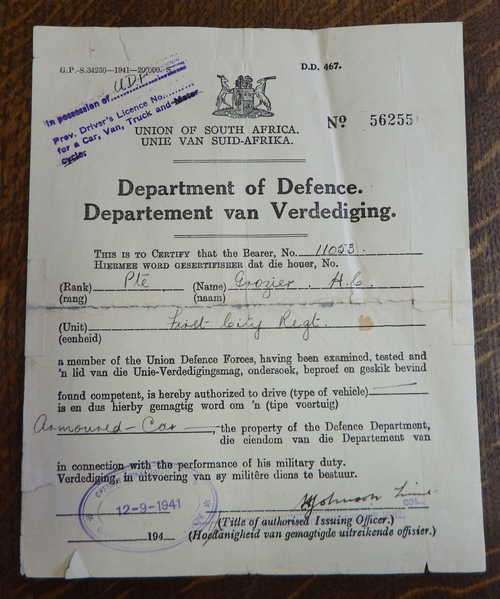 G.P.-S.34250—1941—20,000. S
D.D. 467.
In possession of U.D.F.
Prov. Driver's Licence No.
for a Car, Van, Truck and Motor
cycle.
UNION OF SOUTH AFRICA.
UNIE VAN SUID-AFRIKA.
No 56255
Department of Defence.
Departement van Verdediging.
THIS IS TO CERTIFY that the Bearer, No. 11053.
HIERMEE WORD GESERTIFISEER dat die houer, No.
(Rank) Pte (Name) Crozier. H.C.
(rang) (naam)
(Unit) First City Regt.
(eenheid)
a member of the Union Defence Forces, having been examined, tested and
'n lid van die Unie-Verdedigingsmag, ondersoek, beproef en geskik bevind
found competent, is hereby authorized to drive (type of vehicle)
is en dus hierby gemagtig word om 'n (tipe voertuig)
Armoured-Car, the property of the Defence Department,
die eiendom van die Departement van
in connection with the performance of his military duty.
Verdediging, in uitvoering van sy militêre diens te bestuur.
12-9-1941
Johnson
COL.
(Title of authorised Issuing Officer.)
194 (Hoedanigheid van gemagtigde uitreikende offisier.)